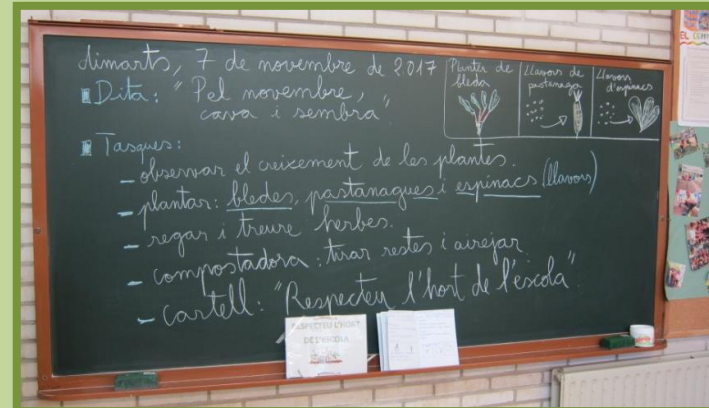 dimarts, 7 de novembre de 2017
Dita: "Pel novembre,
cava i sembra".
Planter de
bleda
Llavors de
pastanaga
Llavors
d'espinacs
Tasques:
- observar el creixement de les plantes.
- plantar: bledes, pastanagues i espinacs (llavors)
- regar i treure herbes.
- compostadora: tirar restes i airejar.
- cartell: "Respecteu l'hort de l'escola".
RESPECTEU L'HORT
DE L'ESCOLA